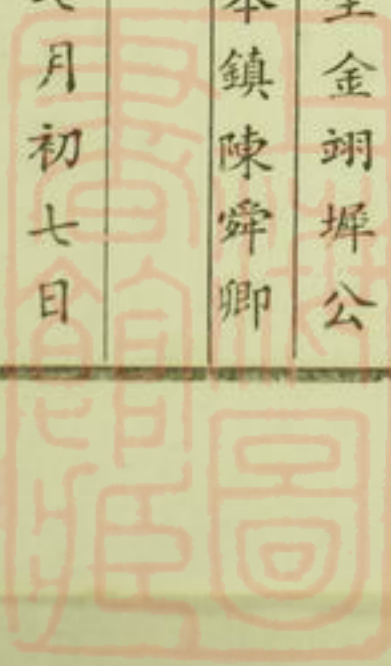 金翊墀公
本鎮陳舜卿
月初七日